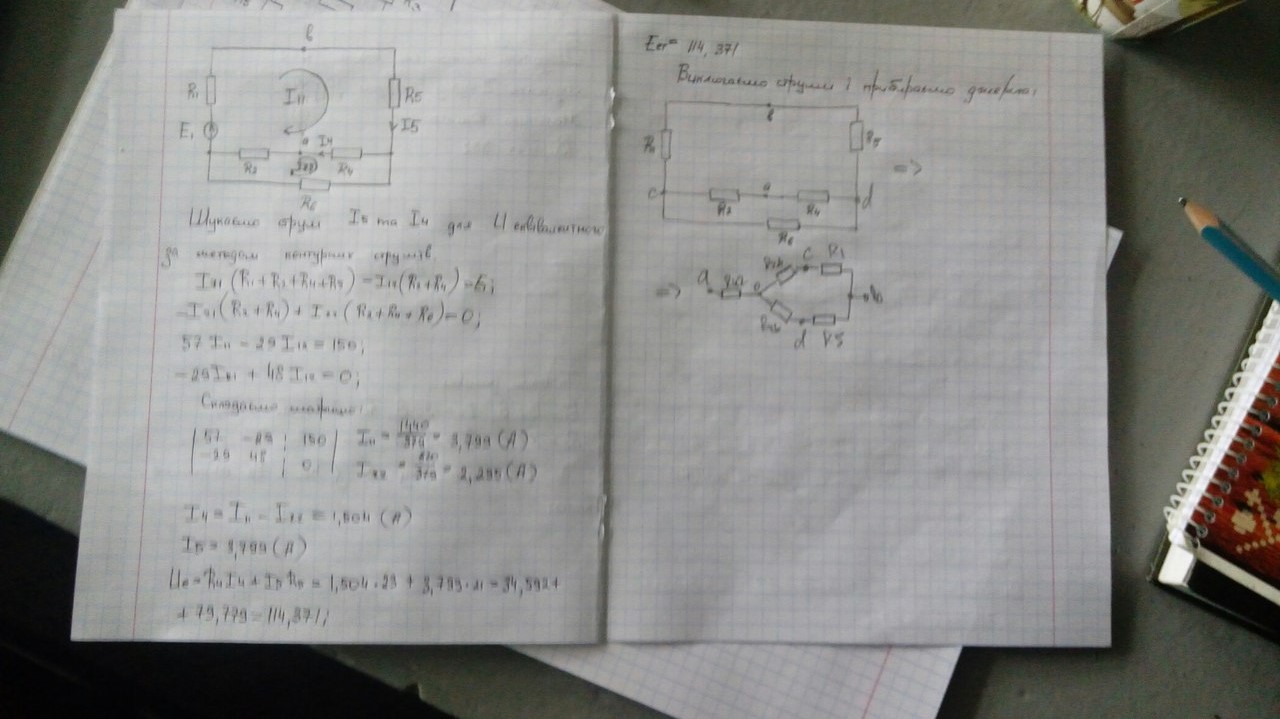 b
R₁
I₁₁
R5
E₁
I5
a
I4
R₂
I₂₂
R4
R6
Шукаємо струм I5 та I4 для U еквівалентного
за методом контурних струмів.
-I₁₁(R₂+R4) + I₂₂(R₂+R4+R6)=0;
57 I₁₁ - 29 I₂₂ = 150;
-29I₁₁ + 48 I₂₂ = 0;
Складаємо матрицю:
57 -29 150 I₁₁ = 1440/379 = 3,799 (A)
-29 48 0 I₂₂ = 870/379 = 2,295 (A)
I4 = I₁₁ - I₂₂ = 1,504 (A)
I5 = 3,799 (A)
Ue = R4I4 + I5R5 = 1,504·23 + 3,799·21 = 34,592+
+ 79,779 = 114,371;
Eег= 114, 371
Виключаємо струми і прибираємо джерела;
b
R₁
R5
=>
c
R₂
a
R4
d
R6
=>
a
o
c
R1
b
d
R5